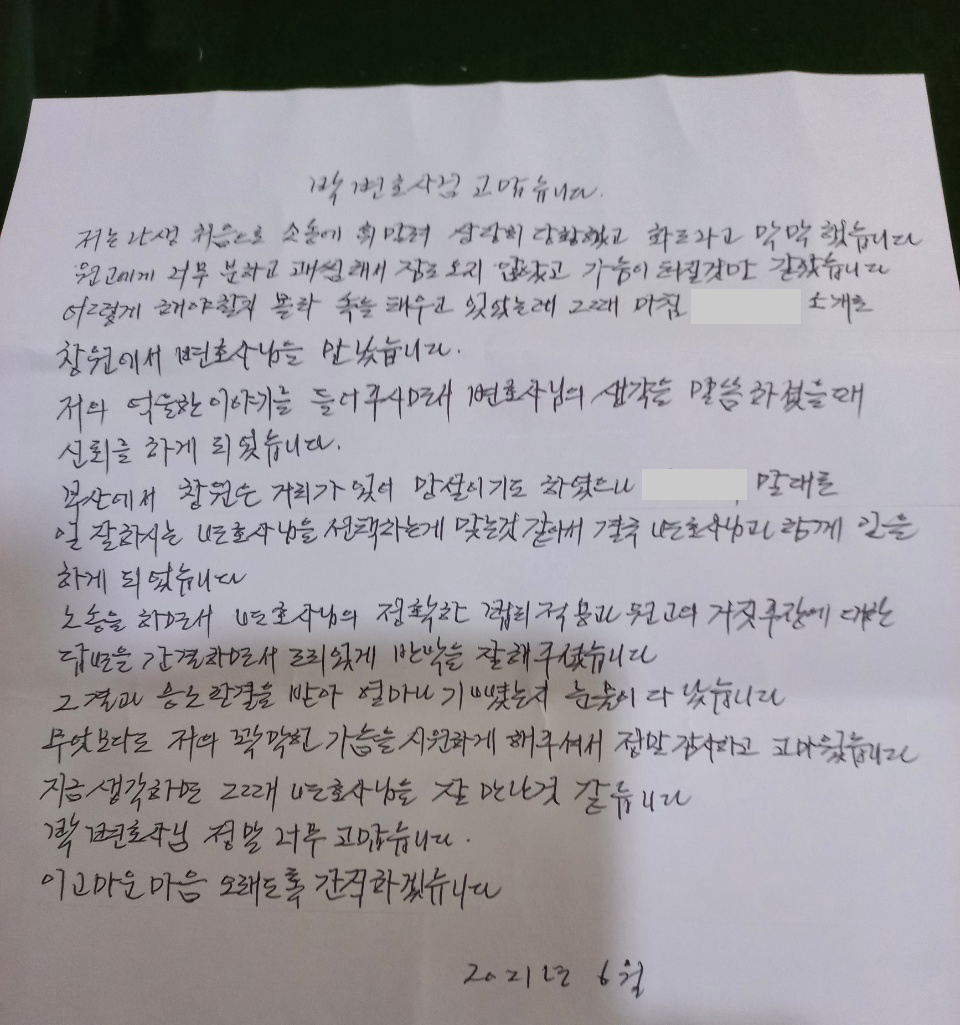 박 변호사님 고맙습니다.
저는 난생 처음으로 소송에 휘말려 상당히 당황했고 화도나고 막막 했습니다
원고에게 너무 분하고 괘씸해서 잠도 오지 않았고 가슴이 터질것만 같았습니다
어떻게 해야할지 몰라 속을 태우고 있었는데 그때 마침 소개로
창원에서 변호사님을 만났습니다.
저의 억울한 이야기를 들어주시면서 변호사님의 생각을 말씀하셨을때
신뢰를 하게 되었습니다.
부산에서 창원은 거리가 있어 망설이기도 하였으나 말대로
일 잘하시는 변호사님을 선택하는게 맞는것 같아서 결국 변호사님과 함께 일을
하게 되었습니다
소송을 하면서 변호사님의 정확한 법리적용과 원고의 거짓주장에 대한
답변을 간결하면서 조리있게 반박을 잘해주셨습니다
그 결과 승소판결을 받아 얼마나 기뻤는지 눈물이 다 났습니다
무엇보다도 저의 꽉막힌 가슴을 시원하게 해주셔서 정말 감사하고 고마웠습니다
지금 생각하면 그때 변호사님을 잘 만난것 같습니다
박 변호사님 정말 너무 고맙습니다.
이 고마운 마음 오래도록 간직하겠습니다
2021년 6월